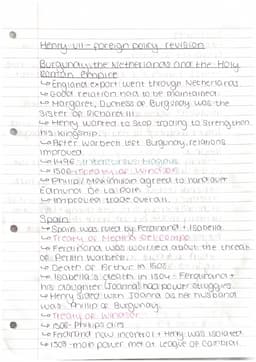 Henry VII - foreign policy revision
Burgundy, the Netherlands and the Holy
Roman Empire
↳ England export went through Netherlands
↳ Good relation had to be maintained
↳ Margaret, Duchess of Burgundy was the
sister of Richard III
↳ Henry wanted to stop trading to strengthen
his kingship
↳ After Warbeck left Burgundy, relations
improved
↳ 1496 - Intercursus Magnus
↳ 1506 - Treaty of Windsor
↳ Philip/Maximilian agreed to hand over
Edmund De La Pole
↳ Improved trade overall
Spain
↳ Spain was ruled by Ferdinand + Isabella
↳ Treaty of Medina Del Campo
↳ Ferdinand was worried about the threat
of Perkin Warbeck
↳ Death of Arthur in 1502
↳ Isabella's death in 1504 - Ferdinand +
his daughter (Joanna) had power struggles
↳ Henry sided with Joanna as her husband
was Philip of Burgundy
↳ Treaty of Windsor
↳ 1506 - Philip dies
↳ Ferdinand now in control + Henry was isolated
↳ 1508 - main power met at League of Cambrai